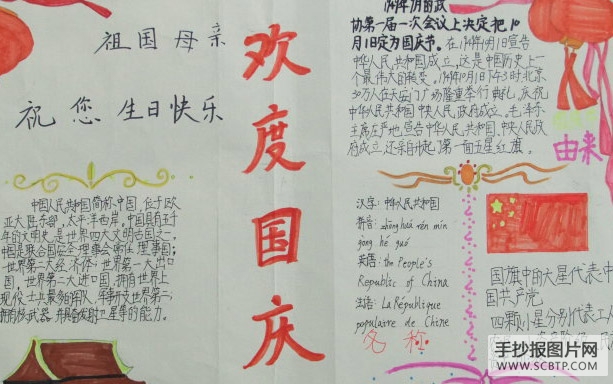 祖国母亲
祝您生日快乐
中国人民共和国简称中国,位于欧
亚大陆东部,太平洋西岸,中国具有五千
年的文明史,是世界四大文明古国之一,
中国是联合国安全理事会常任理事国,
世界第二大经济体,世界第一大进口
国,世界第二大进口国,拥有世界上
现役士兵最多的军队,军事
拥有核武器,并具备发射卫星等的能力。
欢度国庆
1949年9月的政
协第一届一次会议上决定把10
月1日定为国庆节。在1949年10月1日宣告
中华人民共和国成立,这是中国历史上一
个最伟大的转变。1949年10月1日下午3时北京
30万人在天安门广场隆重举行典礼,庆祝
中华人民共和国中央人民政府成立。毛泽东
主席庄严地宣告中华人民共和国、中央人民政
府成立,还亲自升起了第一面五星红旗。
由来
汉字:中华人民共和国
拼音:zhōng huá rén mín
gòng hé guó
英语:the People's
Republic of China
法语:La République
populaire de Chine
名称
国旗中的大星代表中
国共产党
四颗小星分别代表工人
手抄报图片网
WWW.SCBTP.COM